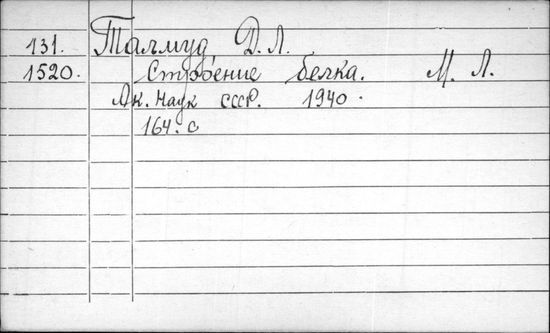 131. Талмуд Д. Л.
1520. Строение белка. М. Л.
Ак. Наук СССР. 1940.
164. с